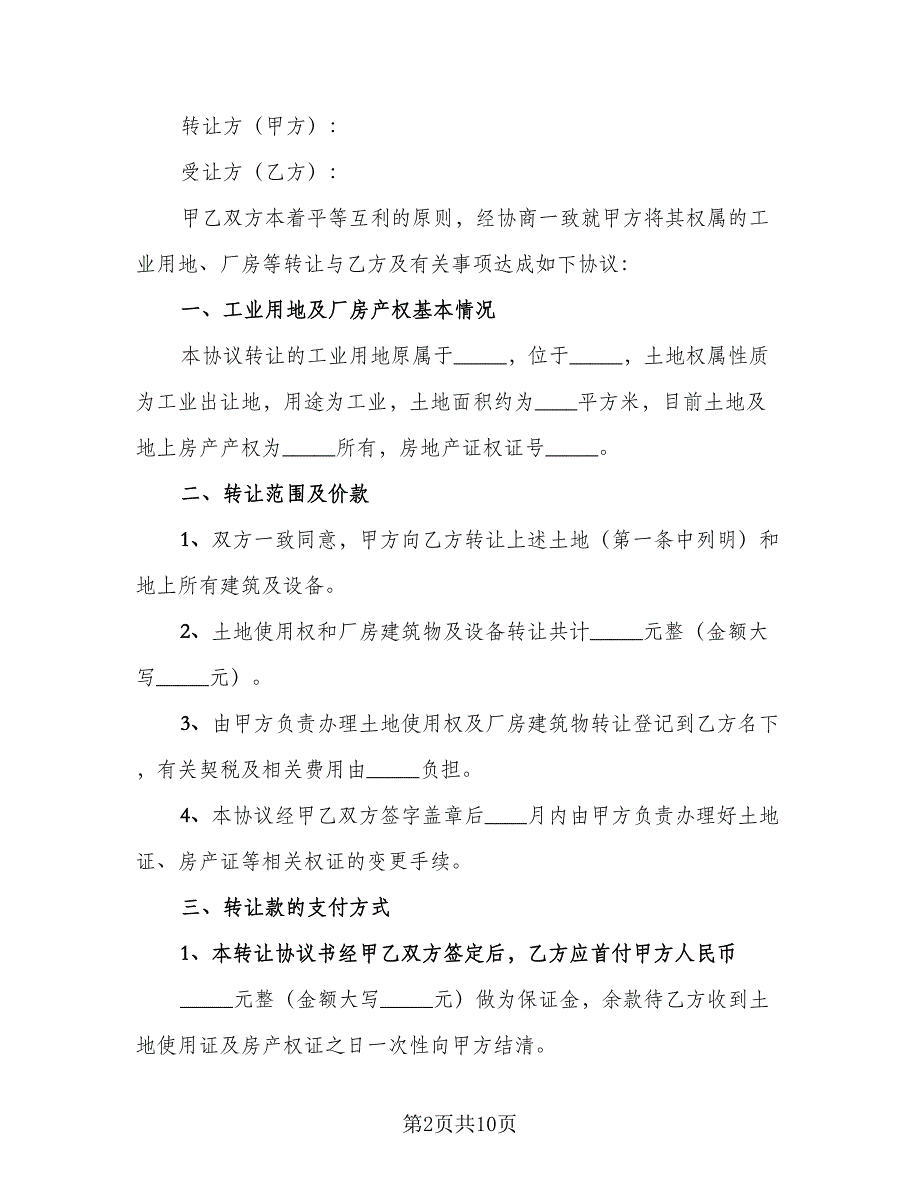 转让方（甲方）：
受让方（乙方）：
甲乙双方本着平等互利的原则，经协商一致就甲方将其权属的工
业用地、厂房等转让与乙方及有关事项达成如下协议：
一、工业用地及厂房产权基本情况
本协议转让的工业用地原属于_____，位于_____，土地权属性质
为工业出让地，用途为工业，土地面积约为____平方米，目前土地及
地上房产产权为_____所有，房地产证权证号_____。
二、转让范围及价款
1、双方一致同意，甲方向乙方转让上述土地（第一条中列明）和
地上所有建筑及设备。
2、土地使用权和厂房建筑物及设备转让共计_____元整（金额大
写_____元）。
3、由甲方负责办理土地使用权及厂房建筑物转让登记到乙方名下
，有关契税及相关费用由_____负担。
4、本协议经甲乙双方签字盖章后____月内由甲方负责办理好土地
证、房产证等相关权证的变更手续。
三、转让款的支付方式
1、本转让协议书经甲乙双方签定后，乙方应首付甲方人民币
_____元整（金额大写_____元）做为保证金，余款待乙方收到土
地使用证及房产权证之日一次性向甲方结清。
第2页共10页